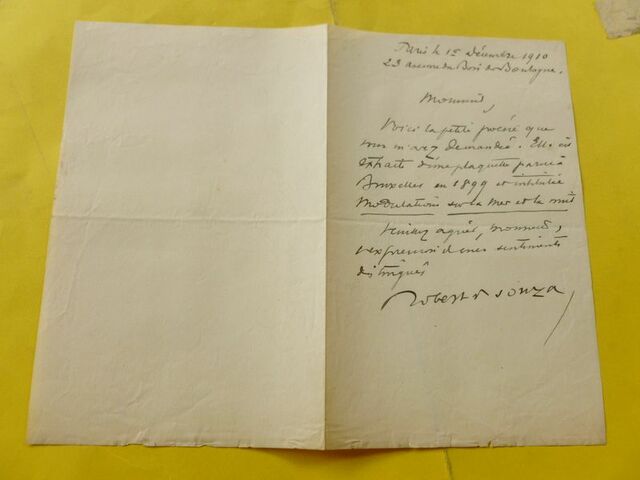 Paris le 1er Décembre 1910
23 avenue du Bois de Boulogne.
Monsieur,
Voici la petite poésie que
vous m'avez demandée. Elle est
extraite d'une plaquette parue à
Bruxelles en 1899 et intitulée
Modulations sur la Mer et la nuit
Veuillez agréer, monsieur,
l'expression de mes sentiments
distingués
Robert de Souza